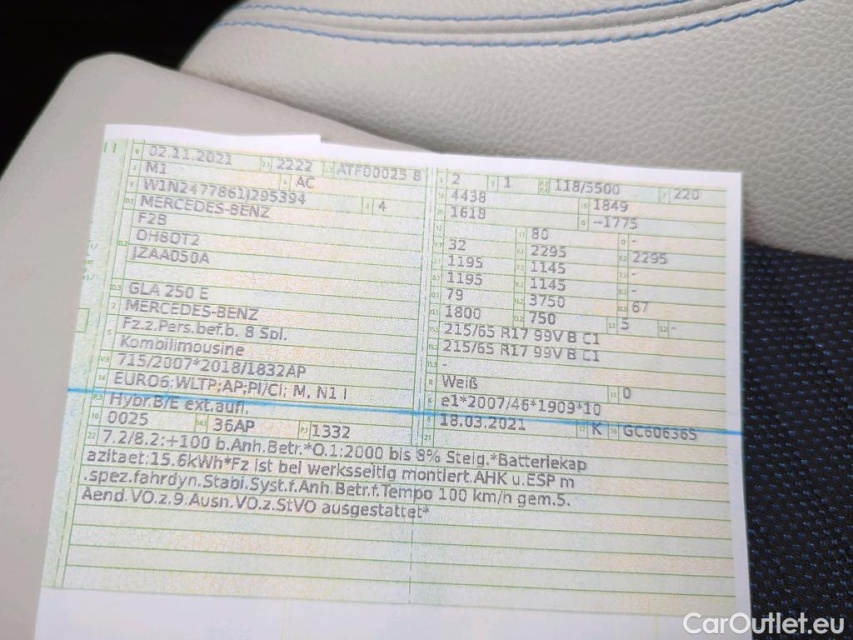 02.11.2021 2222 ATF00025 8
M1 AC
W1N2477861J295394 4
MERCEDES-BENZ
F2B
OH8OT2
JZAA050A
GLA 250 E
MERCEDES-BENZ
Fz.z.Pers.bef.b. 8 Spl.
Kombilimousine
715/2007*2018/1832AP
EURO6;WLTP;AP;PI/CI; M, N1 I
Hybr.B/E ext.aufl.
0025 36AP 1332
2 1 118/5500 220
4438 1849
1618 -1775
80 -
32 2295 2295
1195 1145 -
1195 1145 -
79 3750 67
1800 750 5 -
215/65 R17 99V B C1
215/65 R17 99V B C1
-
Weiß 0
e1*2007/46*1909*10
18.03.2021 K GC606365
7.2/8.2:+100 b.Anh.Betr.*O.1:2000 bis 8% Steig.*Batteriekap
azitaet:15.6kWh*Fz ist bei werksseitig montiert.AHK u.ESP m
.spez.fahrdyn.Stabi.Syst.f.Anh.Betr.f.Tempo 100 km/h gem.5.
Aend.VO.z.9.Ausn.VO.z.StVO ausgestattet*
CarOutlet.eu